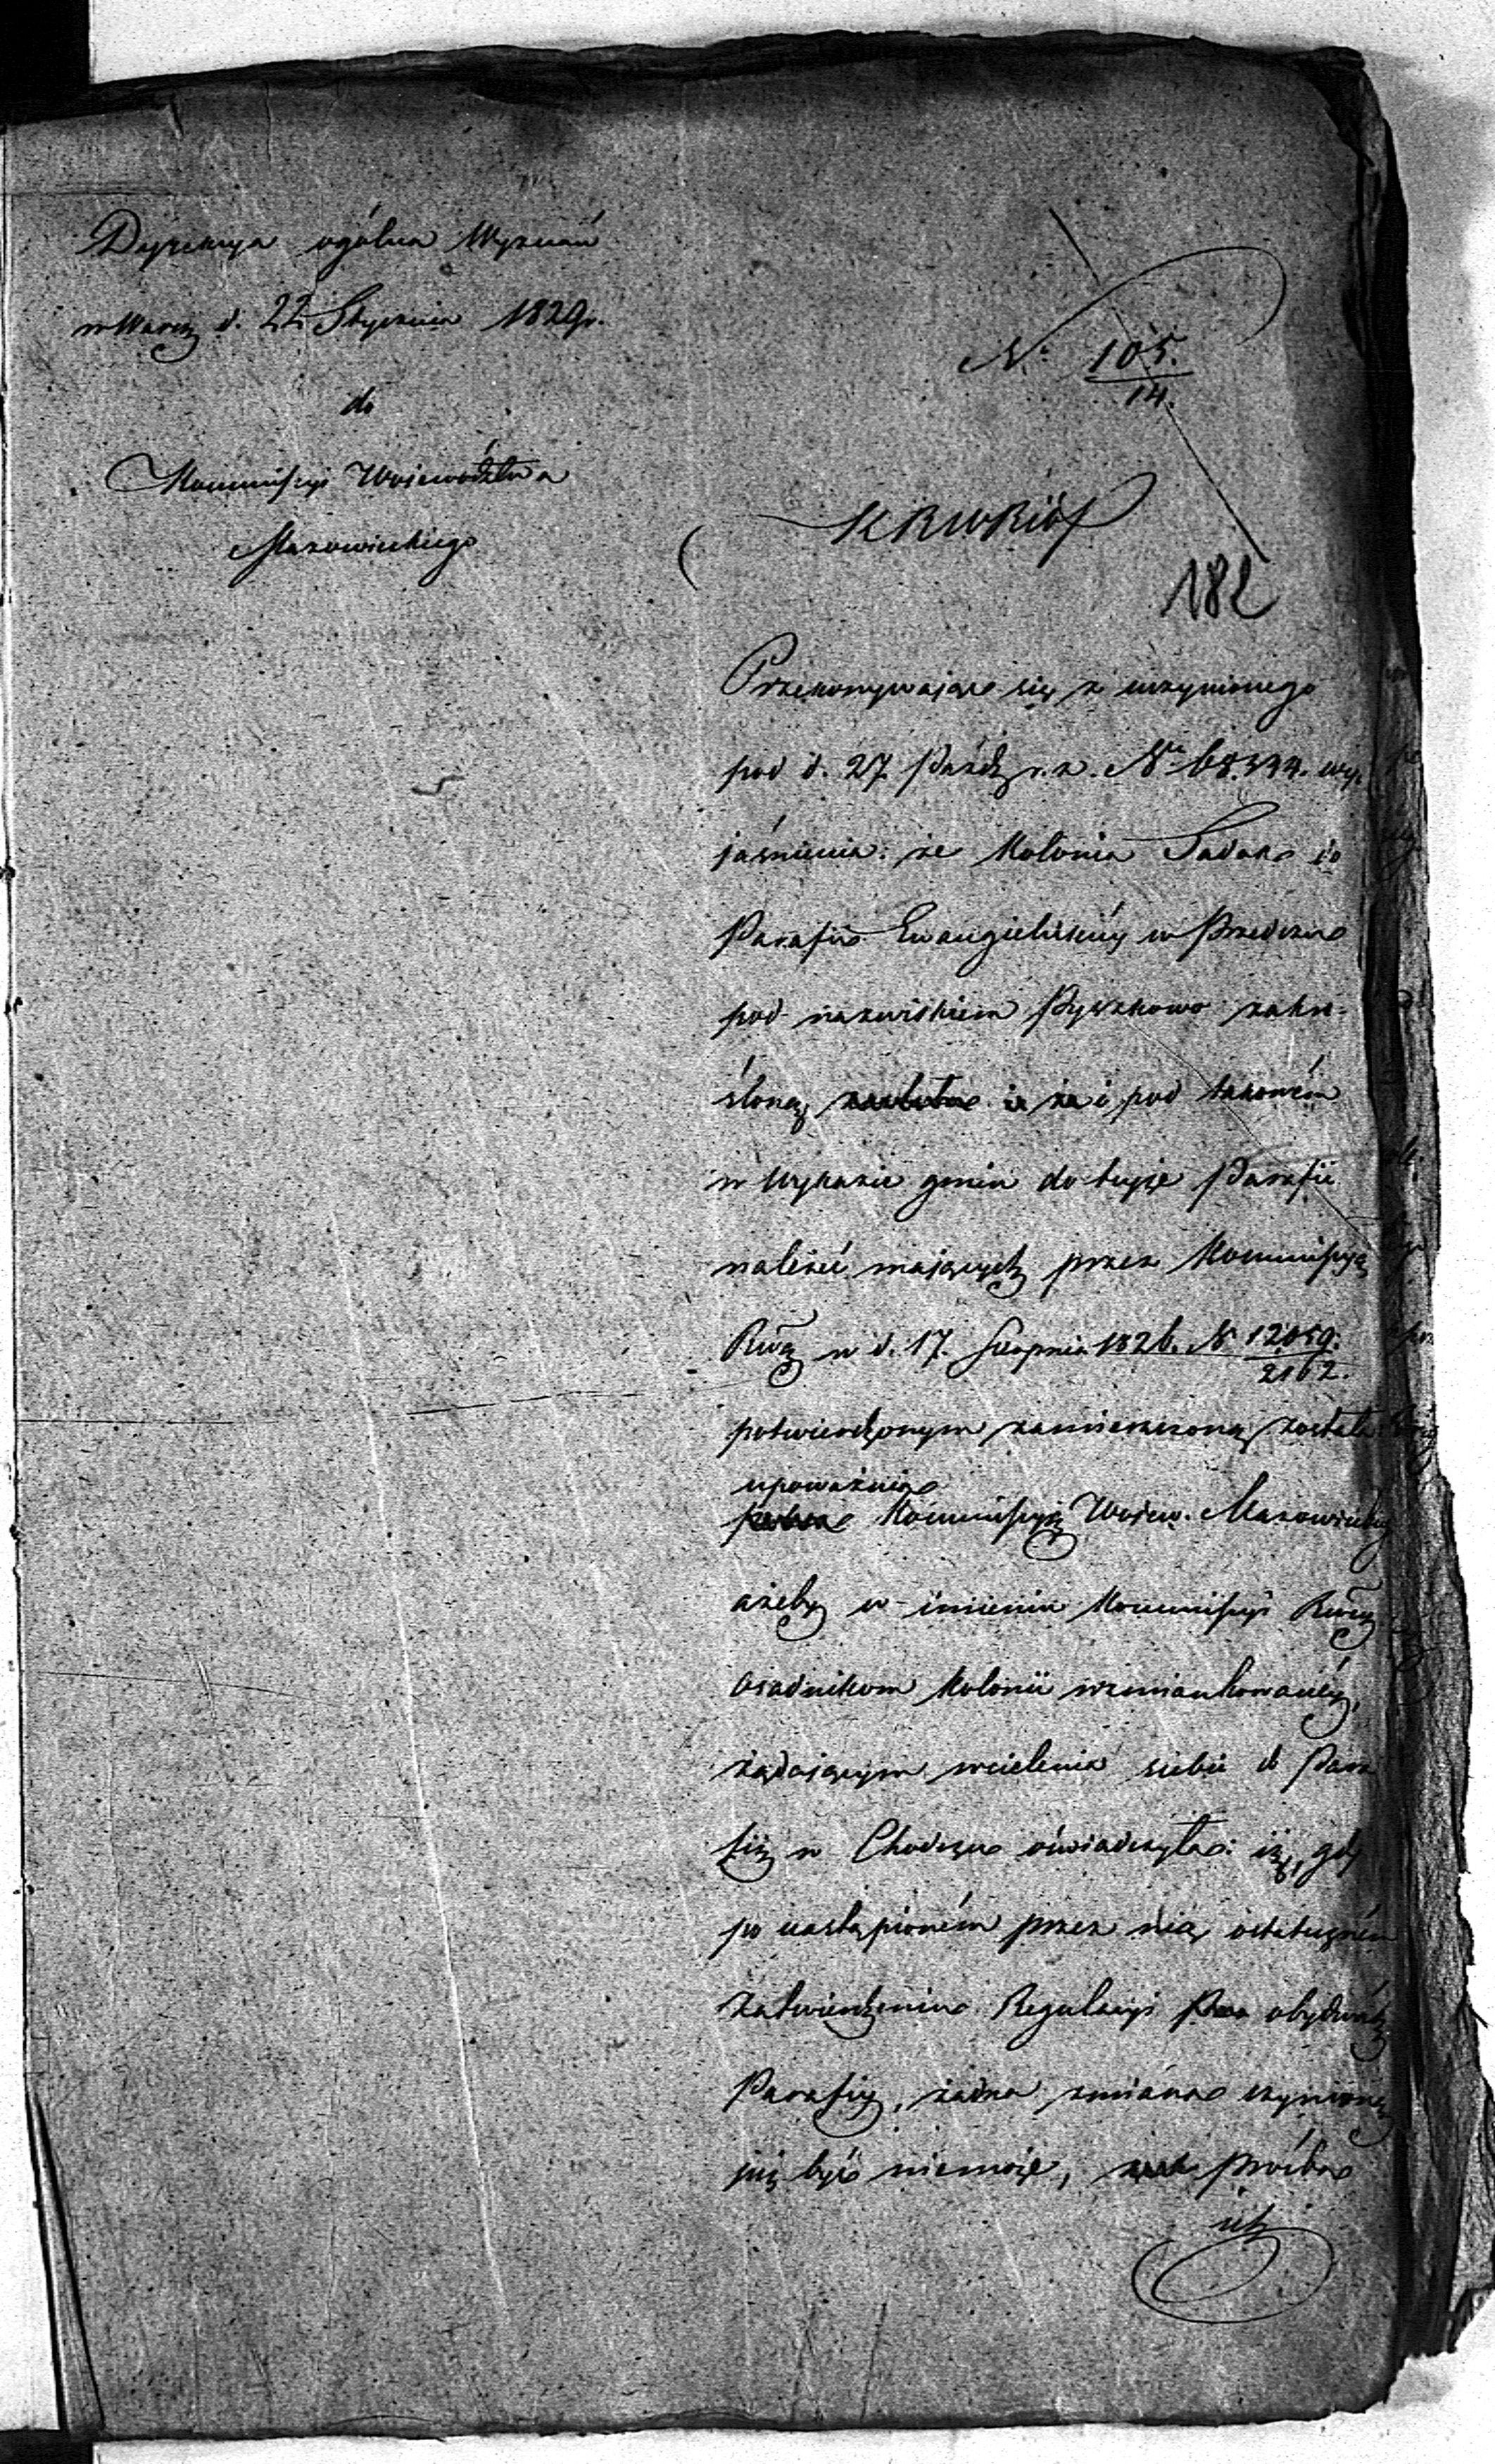 Dyrekcya ogólna Wyznań
w Warsz d. 22 Stycznia 1829 r.
do
Kommissyi Województwa
Mazowieckiego
N° 105.
14.
KRWRiOP
182
Przekonywając się z uczynionego
pod d. 27. Paźdz r. z. N° 68,344. wy-
jaśnienia: że Kolonia Sadok do
Parafii Ewangielickiéy w Przedczu
pod nazwiskiem Pyszkowo zakre-
śloną i pod takowém
w Wykazie gmin do teyże Parafii
należeć mających przez Kommissyą
Rwą w d. 17. Sierpnia 1826. N° 12,059.
2162.
potwierdzonym zamieszczoną została
upoważnia
Kommissyą Wojew. Mazowiecką
ażeby w imieniu Kommissyi Rwéy
osadnikom Kolonii wzmiankowanéy,
żądającym wcielenia siebie do Para
fii w Chodczu oświadczyła: iż, gdy
po nastąpioném przez nią ostateczném
zatwierdzeniu Regulacyi obydwóch
Parafiy, żadna zmiana czynioną
już być niemoże, prośba
ich